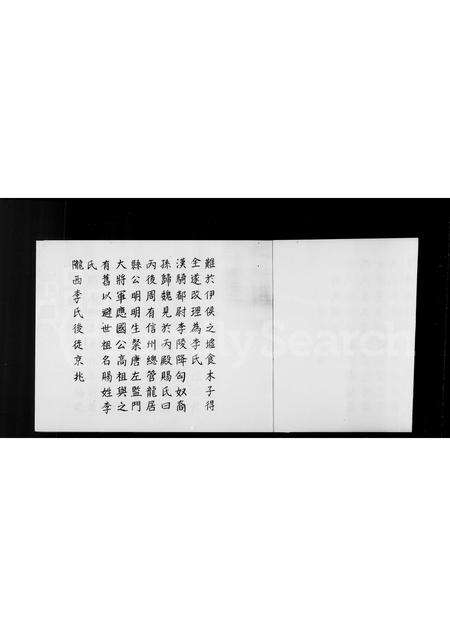 難於伊侯之墟食木子得
全遂改理為李氏
漢騎都尉李陵降匈奴裔
孫歸魏見於丙殿賜氏曰
丙後周有信州總管龍居
縣公明明生粲唐左監門
大將軍應國公高祖與之
有舊以避世祖名賜姓李
氏
隴西李氏後徙京兆